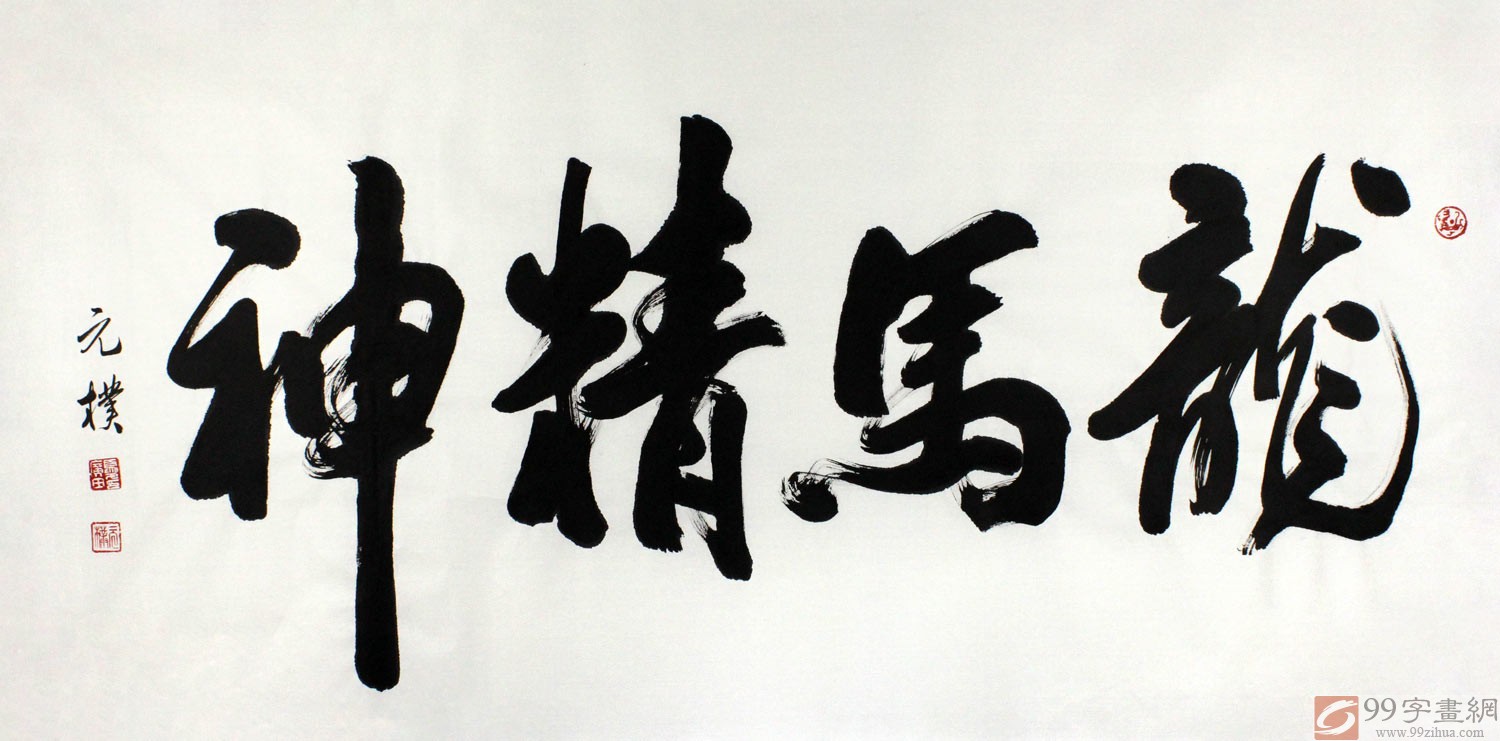 龍馬精神
元樸
99字畫網
www.99zihua.com